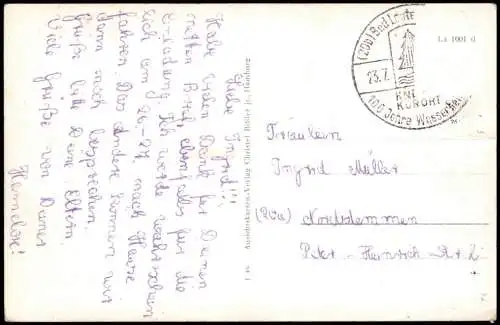 Liebe Ingrid!
Habe vielen Dank für Deinen
netten Brief, ebenfalls für die
Einladung. Ich werde wahrschein-
lich am 26.-27. nach Hause
fahren. Das andere können wir
dann noch besprechen.
Grüße bitte Deine Eltern.
Viele Grüße von Deiner
Hannelore!
Ansichtskarten-Verlag Christel Müller jr., Hamburg
La 1001 d
(20b) Bad Laute
23.7.
KNEIPP
KURORT
100 Jahre Wasserheil
Fräulein
Ingrid Müller
(20a) Nordstemmen
Peter-Heinrich Str 2